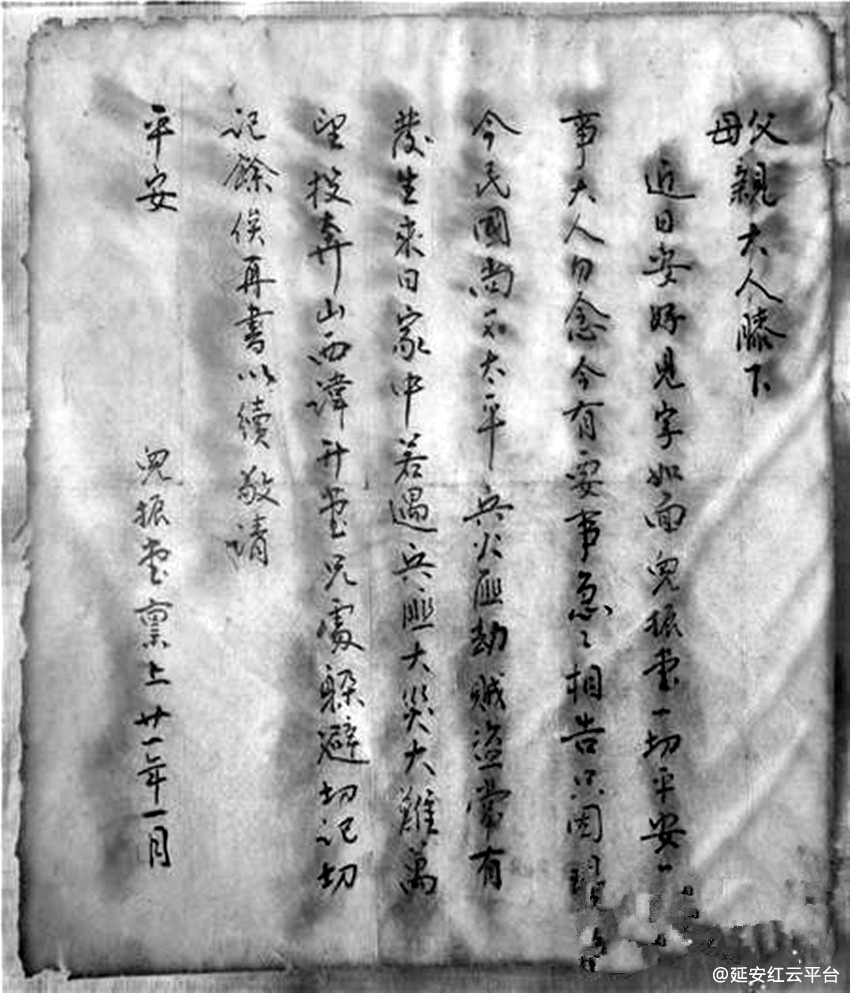 父母親大人膝下
近日安好見字如面兒振堂一切平安
事大人勿念今有要事急々相告只因現
今民國尚不太平兵火匪劫賊盜常有
發生來日家中若遇兵匪大災大難萬
望投奔山西諱升堂兄處躲避切记切
记餘俟再書以續敬请
平安
兒振堂禀上廿一年一月
@延安红云平台